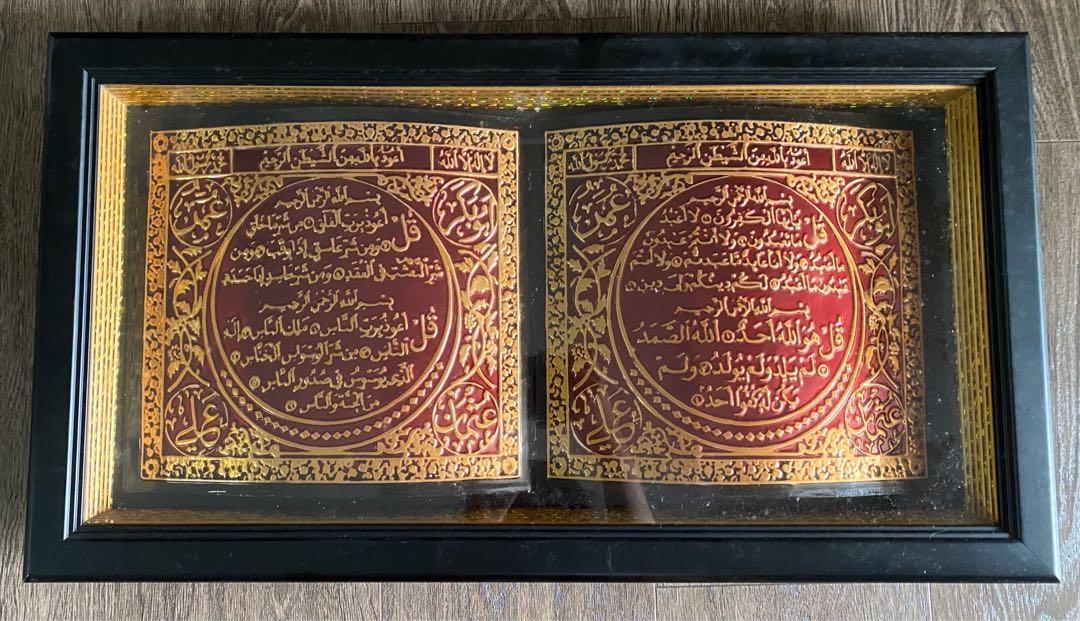 لا اله الا الله اعوذ بالله من الشيطن الرجيم محمد رسول الله
ابوبكر
عمر
بسم الله الرحمن الرحيم
قل يايها الكفرون لا اعبد
ما تعبدون ولا انتم عبدون
ما اعبد ولا انا عابد ما عبدتم ولا انتم
عبدون ما اعبد لكم دينكم ولى دين
بسم الله الرحمن الرحيم
قل هو الله احد الله الصمد
لم يلد ولم يولد ولم
يكن له كفوا احد
عثمان
علي
لا اله الا الله اعوذ بالله من الشيطن الرجيم محمد رسول الله
ابوبكر
عمر
بسم الله الرحمن الرحيم
قل اعوذ برب الفلق من شر ما خلق
ومن شر غاسق اذا وقب ومن
شر النفثت في العقد ومن شر حاسد اذا حسد
بسم الله الرحمن الرحيم
قل اعوذ برب الناس ملك الناس اله
الناس من شر الوسواس الخناس
الذى يوسوس في صدور الناس
من الجنة والناس
عثمان
علي